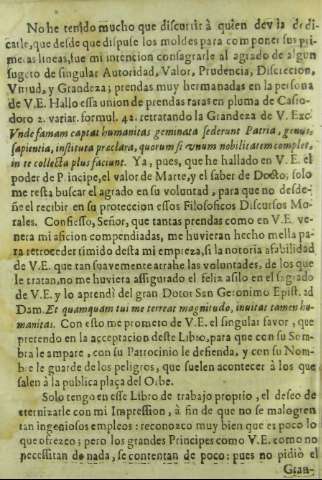 No he tenido mucho que discurrir à quien devia dedi-
carle, que desde que dispuse los moldes para componer sus pri-
meras lineas, fue mi intencion consagrarle al agrado de algun
sugeto de singular Autoridad, Valor, Prudencia, Discrecion,
Virtud, y Grandeza; prendas muy hermanadas en la persona
de V.E. Hallo essa union de prendas raras en pluma de Casio-
doro 2. variar. formul. 42. retratando la Grandeza de V. Exc.
Vnde famam captat humanitas geminata sederunt Patria, genus,
sapientia, instituta præclara, quorum si vnum nobilitatem complet,
in te collecta plus faciunt. Ya, pues, que he hallado en V.E. el
poder de Principe, el valor de Marte, y el saber de Docto, solo
me resta buscar el agrado en su voluntad, para que no desde-
ñe el recibir en su proteccion essos Filosoficos Discursos Mo-
rales. Confiesso, Señor, que tantas prendas como en V.E. ve-
nera mi aficion compendiadas, me huvieran hecho mella pa-
ra retroceder timido desta mi empresa, si la notoria afabilidad
de V.E. que tan suavemente atrahe las voluntades, de los que
le tratan, no me huviera assigurado el feliz asilo en el sagrado
de V.E. y lo aprendi del gran Dotor San Geronimo Epist. ad
Dam. Et quamquam tui me terreat magnitudo, invitat tamen hu-
manitas. Con esto me prometo de V.E. el singular favor, que
pretendo en la acceptacion deste Libro, para que con su Som-
bra le ampare, con su Patrocinio le defienda, y con su Nom-
bre le guarde de los peligros, que suelen acontecer à los que
salen à la publica plaça del Orbe.
Solo tengo en esse Libro de trabajo proprio, el deseo de
eternizarle con mi Impression, à fin de que no se malogren
tan ingeniosos empleos: reconozco muy bien que es poco lo
que ofrezco; pero los grandes Principes como V.E. como no
necessitan de nada, se contentan de poco: pues no pidiò el
Gran-